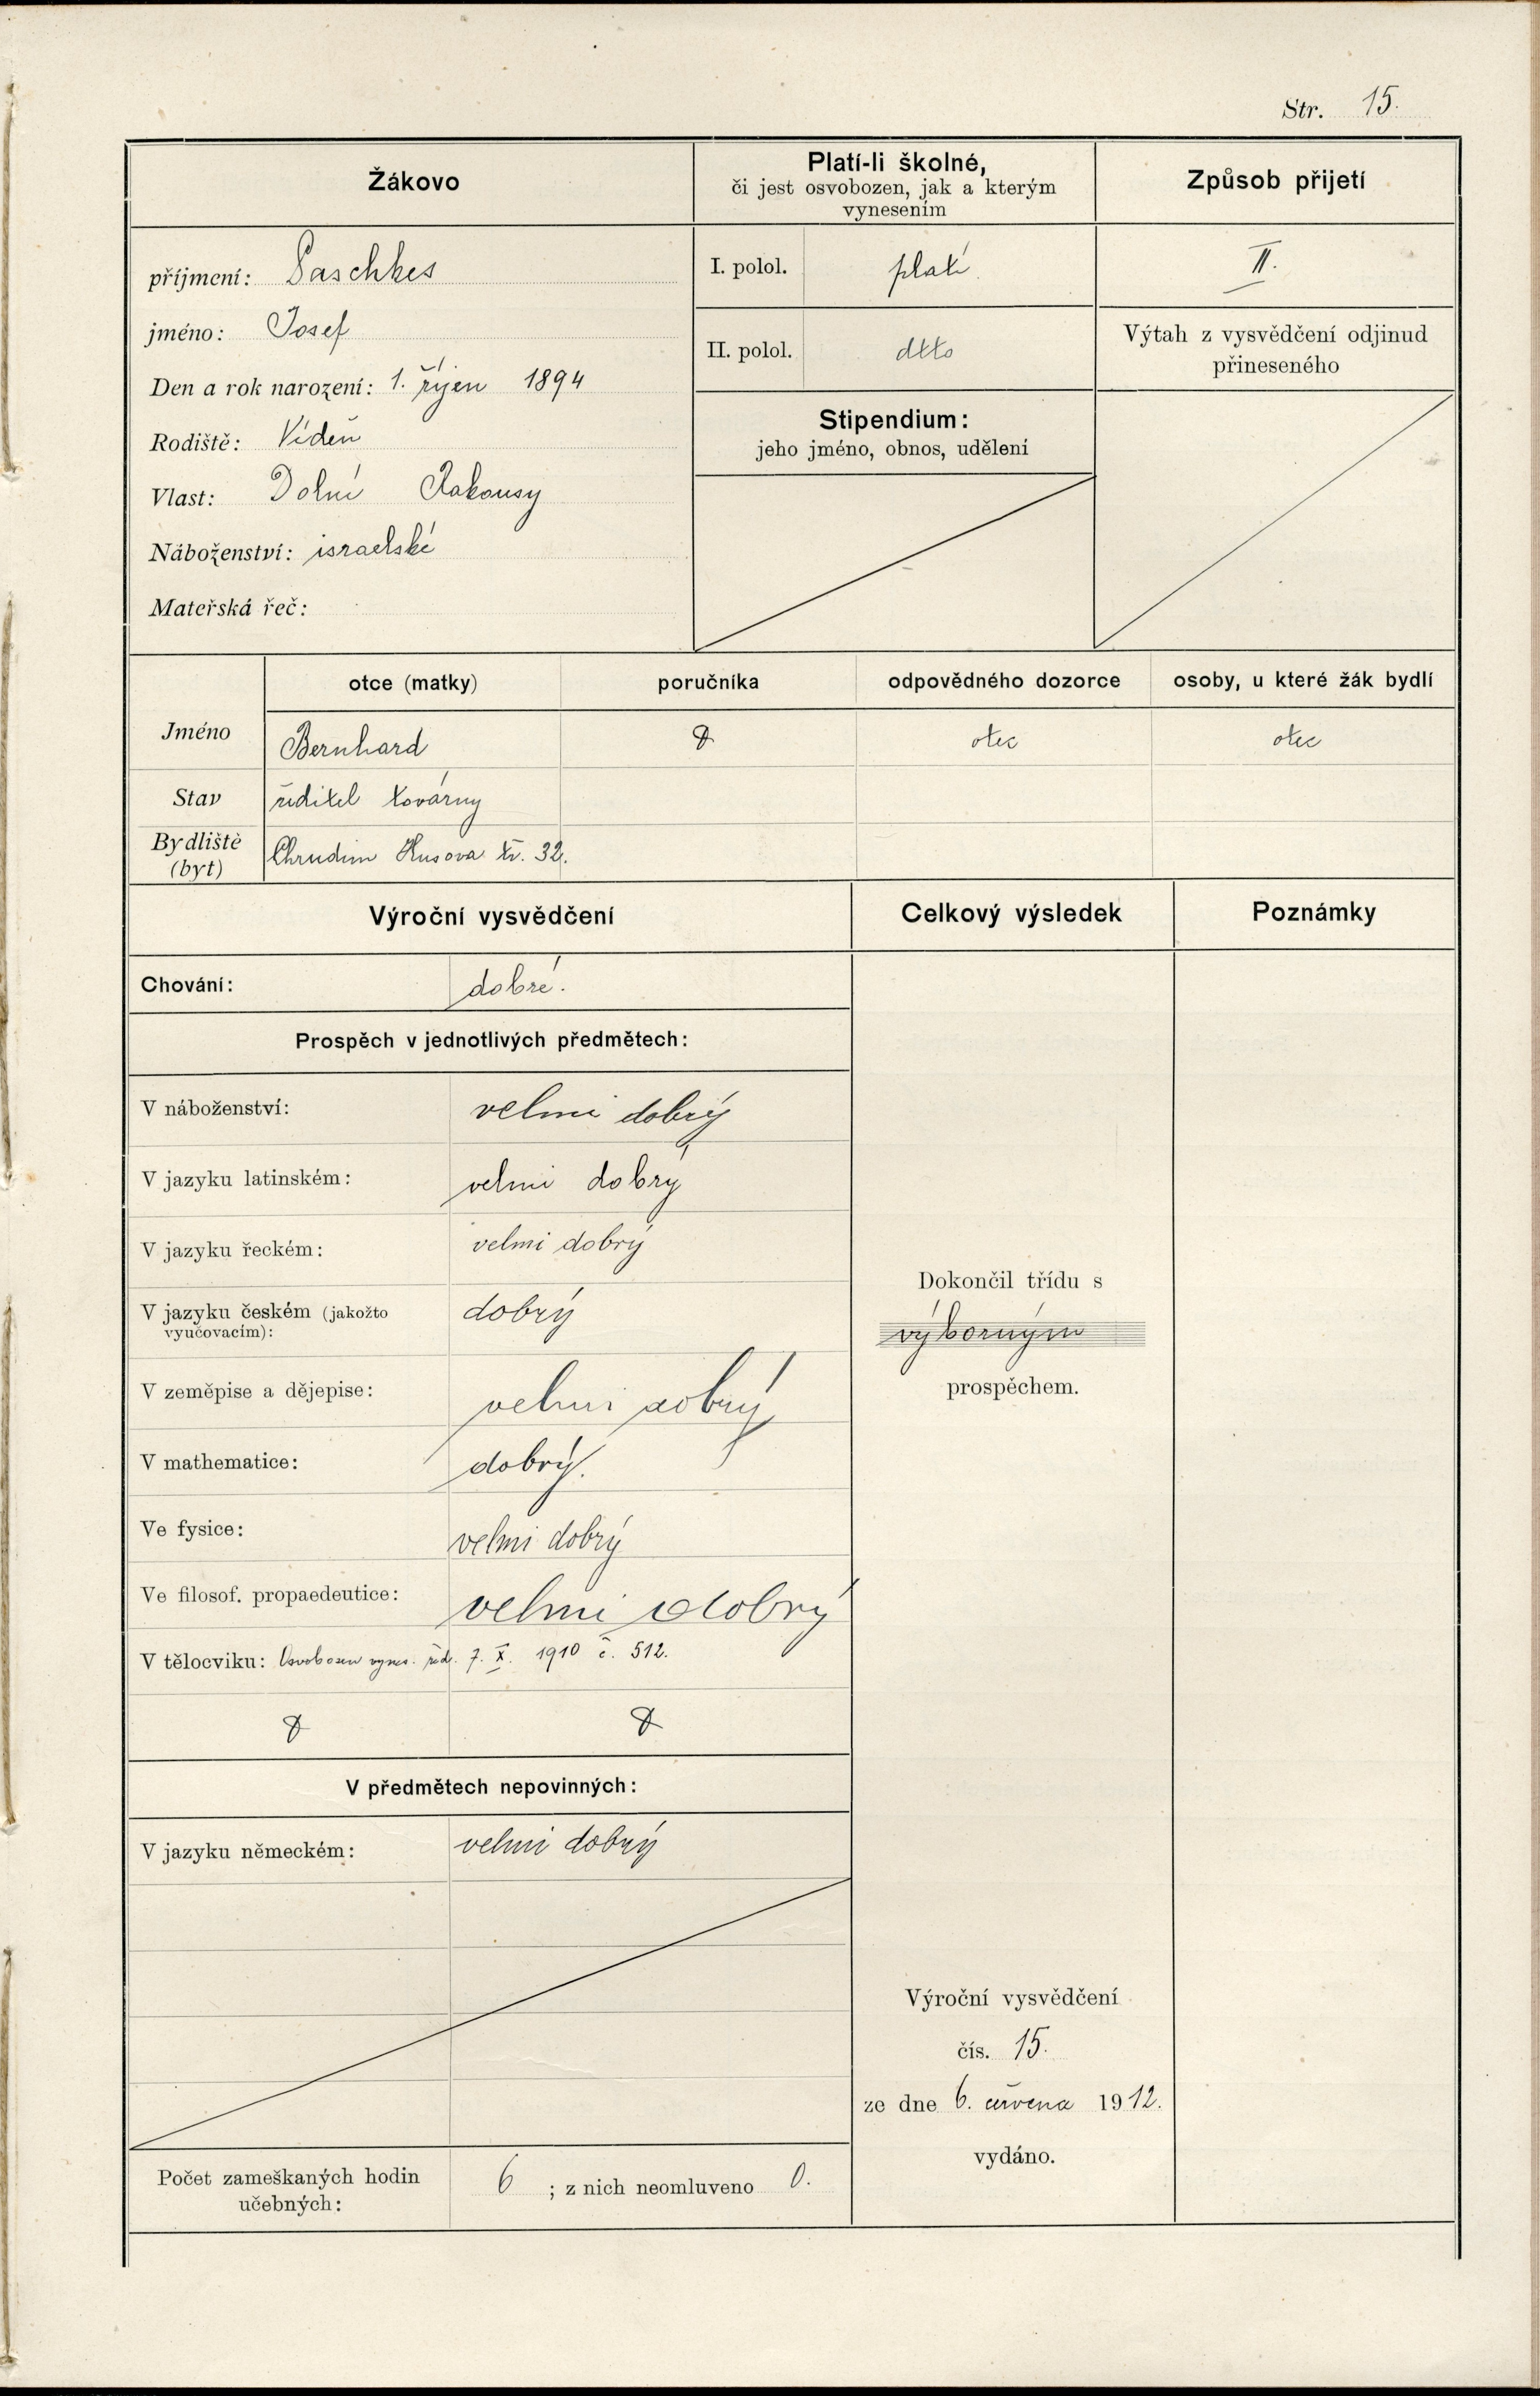 Str. 15.
Žákovo
Platí-li školné,
či jest osvobozen, jak a kterým
vynesením
Způsob přijetí
příjmení: Paschkes
I. polol. platí
II.
jméno: Josef
II. polol. dtto
Výtah z vysvědčení odjinud
přineseného
Den a rok narození: 1. říjen 1894
Stipendium:
jeho jméno, obnos, udělení
Rodiště: Vídeň
Vlast: Dolní Rakousy
Náboženství: israelské
Mateřská řeč:
otce (matky) poručníka odpovědného dozorce osoby, u které žák bydlí
Jméno Bernhard otec otec
Stav ředitel továrny
Bydliště
(byt) Chrudim Husova tř. 32.
Výroční vysvědčení Celkový výsledek Poznámky
Chování: dobré.
Prospěch v jednotlivých předmětech:
V náboženství: velmi dobrý
V jazyku latinském: velmi dobrý
V jazyku řeckém: velmi dobrý
V jazyku českém (jakožto
vyučovacím): dobrý
V zeměpise a dějepise: velmi dobrý
V mathematice: dobrý.
Ve fysice: velmi dobrý
Ve filosof. propaedeutice: velmi dobrý
V tělocviku: Osvobozen vynes. řed. 7. X. 1910 č. 512.
Dokončil třídu s
výborným
prospěchem.
V předmětech nepovinných:
V jazyku německém: velmi dobrý
Výroční vysvědčení
čís. 15.
ze dne 6. června 1912.
vydáno.
Počet zameškaných hodin
učebných: 6 ; z nich neomluveno 0.